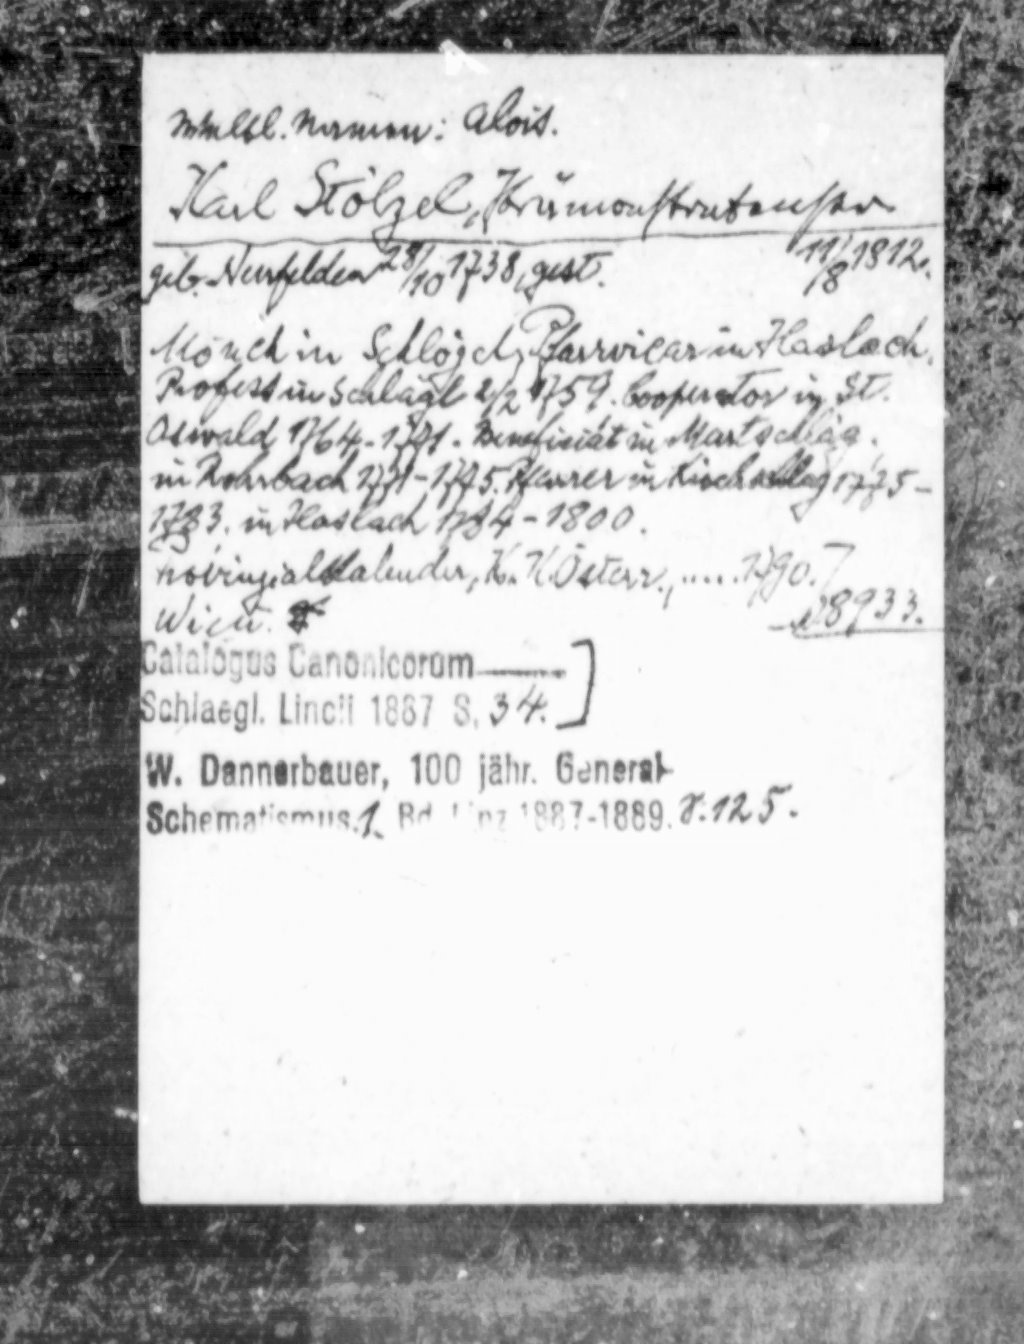 weltl. Namen: Alois.
Karl Stölzel, Prämonstratenser
geb. Neufelden 28/10 1738, gest. 11/8 1812.
Mönch in Schlögel, Pfarrvicar in Haslach.
Profess in Schlägl 2/2 1759. Cooperator in St.
Oswald 1764-1771. Benefiziat in Martschläg.
in Rohrbach 1771-1775. Pfarrer in Kirchschlag 1775-
1783. in Haslach 1784-1800.
Provinzialkalender, K. K. Österr., ..... 1790.
Wien. 28933.
Catalogus Canonicorum
Schlaegl. Lincii 1887 S. 34.
W. Dannerbauer, 100 jähr. General-
Schematismus. 1. Bd. Linz 1887-1889. S. 125.